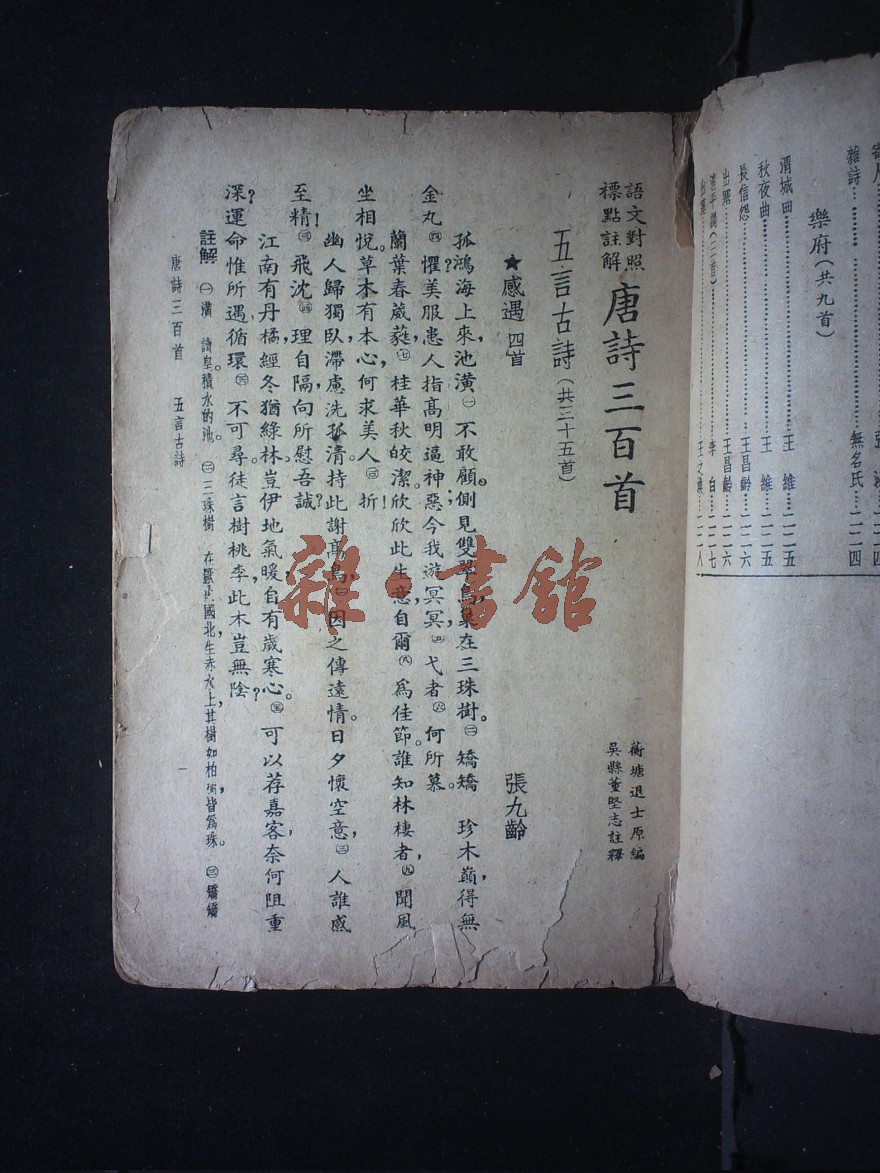 寄人
雜詩……無名氏…二二四
樂府（共九首）
渭城曲……王 維…二二五
秋夜曲……王 維…二二五
長信怨……王昌齡…二二六
出塞……王昌齡…二二六
李 白…二二七
出塞……王之渙…二二八
語文對照
標點註解
唐詩三百首
蘅塘退士原編
吳縣董堅志註釋
五言古詩（共三十五首）
★感遇 四首 張九齡
孤鴻海上來，池潢㊀不敢顧。側見雙翠鳥，巢在三珠樹。㊁矯矯 珍木巔，得無
金丸㊃懼？美服患人指，高明逼神惡。今我遊冥冥，㊃弋者㊅何所慕。
蘭葉春葳蕤，㊆桂華秋皎潔。欣欣此生意，自爾㊇為佳節。誰知林棲者，㊈聞風
坐相悅。草木有本心，何求美人㊂折！
幽人歸獨臥，滯慮洗孤清。持此謝高鳥，因之傳遠情。日夕懷空意，㊂人誰感
至精！㊂飛沈㊃理自隔，向所慰吾誠？
江南有丹橘，經冬猶綠林。豈伊地氣暖，自有歲寒心。㊄可以荐嘉客，奈何阻重
深？運命惟所遇，循環㊅不可尋。徒言樹桃李，此木豈無陰？
註解 ㊀潢 讀皇。積水的池。 ㊁三珠樹 在國北，生赤水上，其樹如柏，皆為珠。 ㊂矯矯
唐詩三百首 五言古詩 一
雜·書館